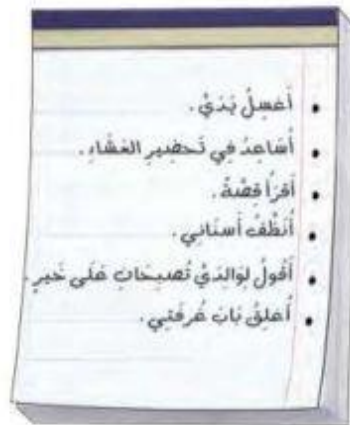 • أَغسِلُ يَدَيَّ.
• أُسَاعِدُ فِي تَحضِيرِ العَشَاءِ.
• أَقرَأُ قِصَّةً.
• أُنَظِّفُ أَسنَانِي.
• أَقُولُ لِوَالِدَيَّ تُصبِحَانِ عَلَى خَيرٍ.
• أُغلِقُ بَابَ غُرفَتِي.